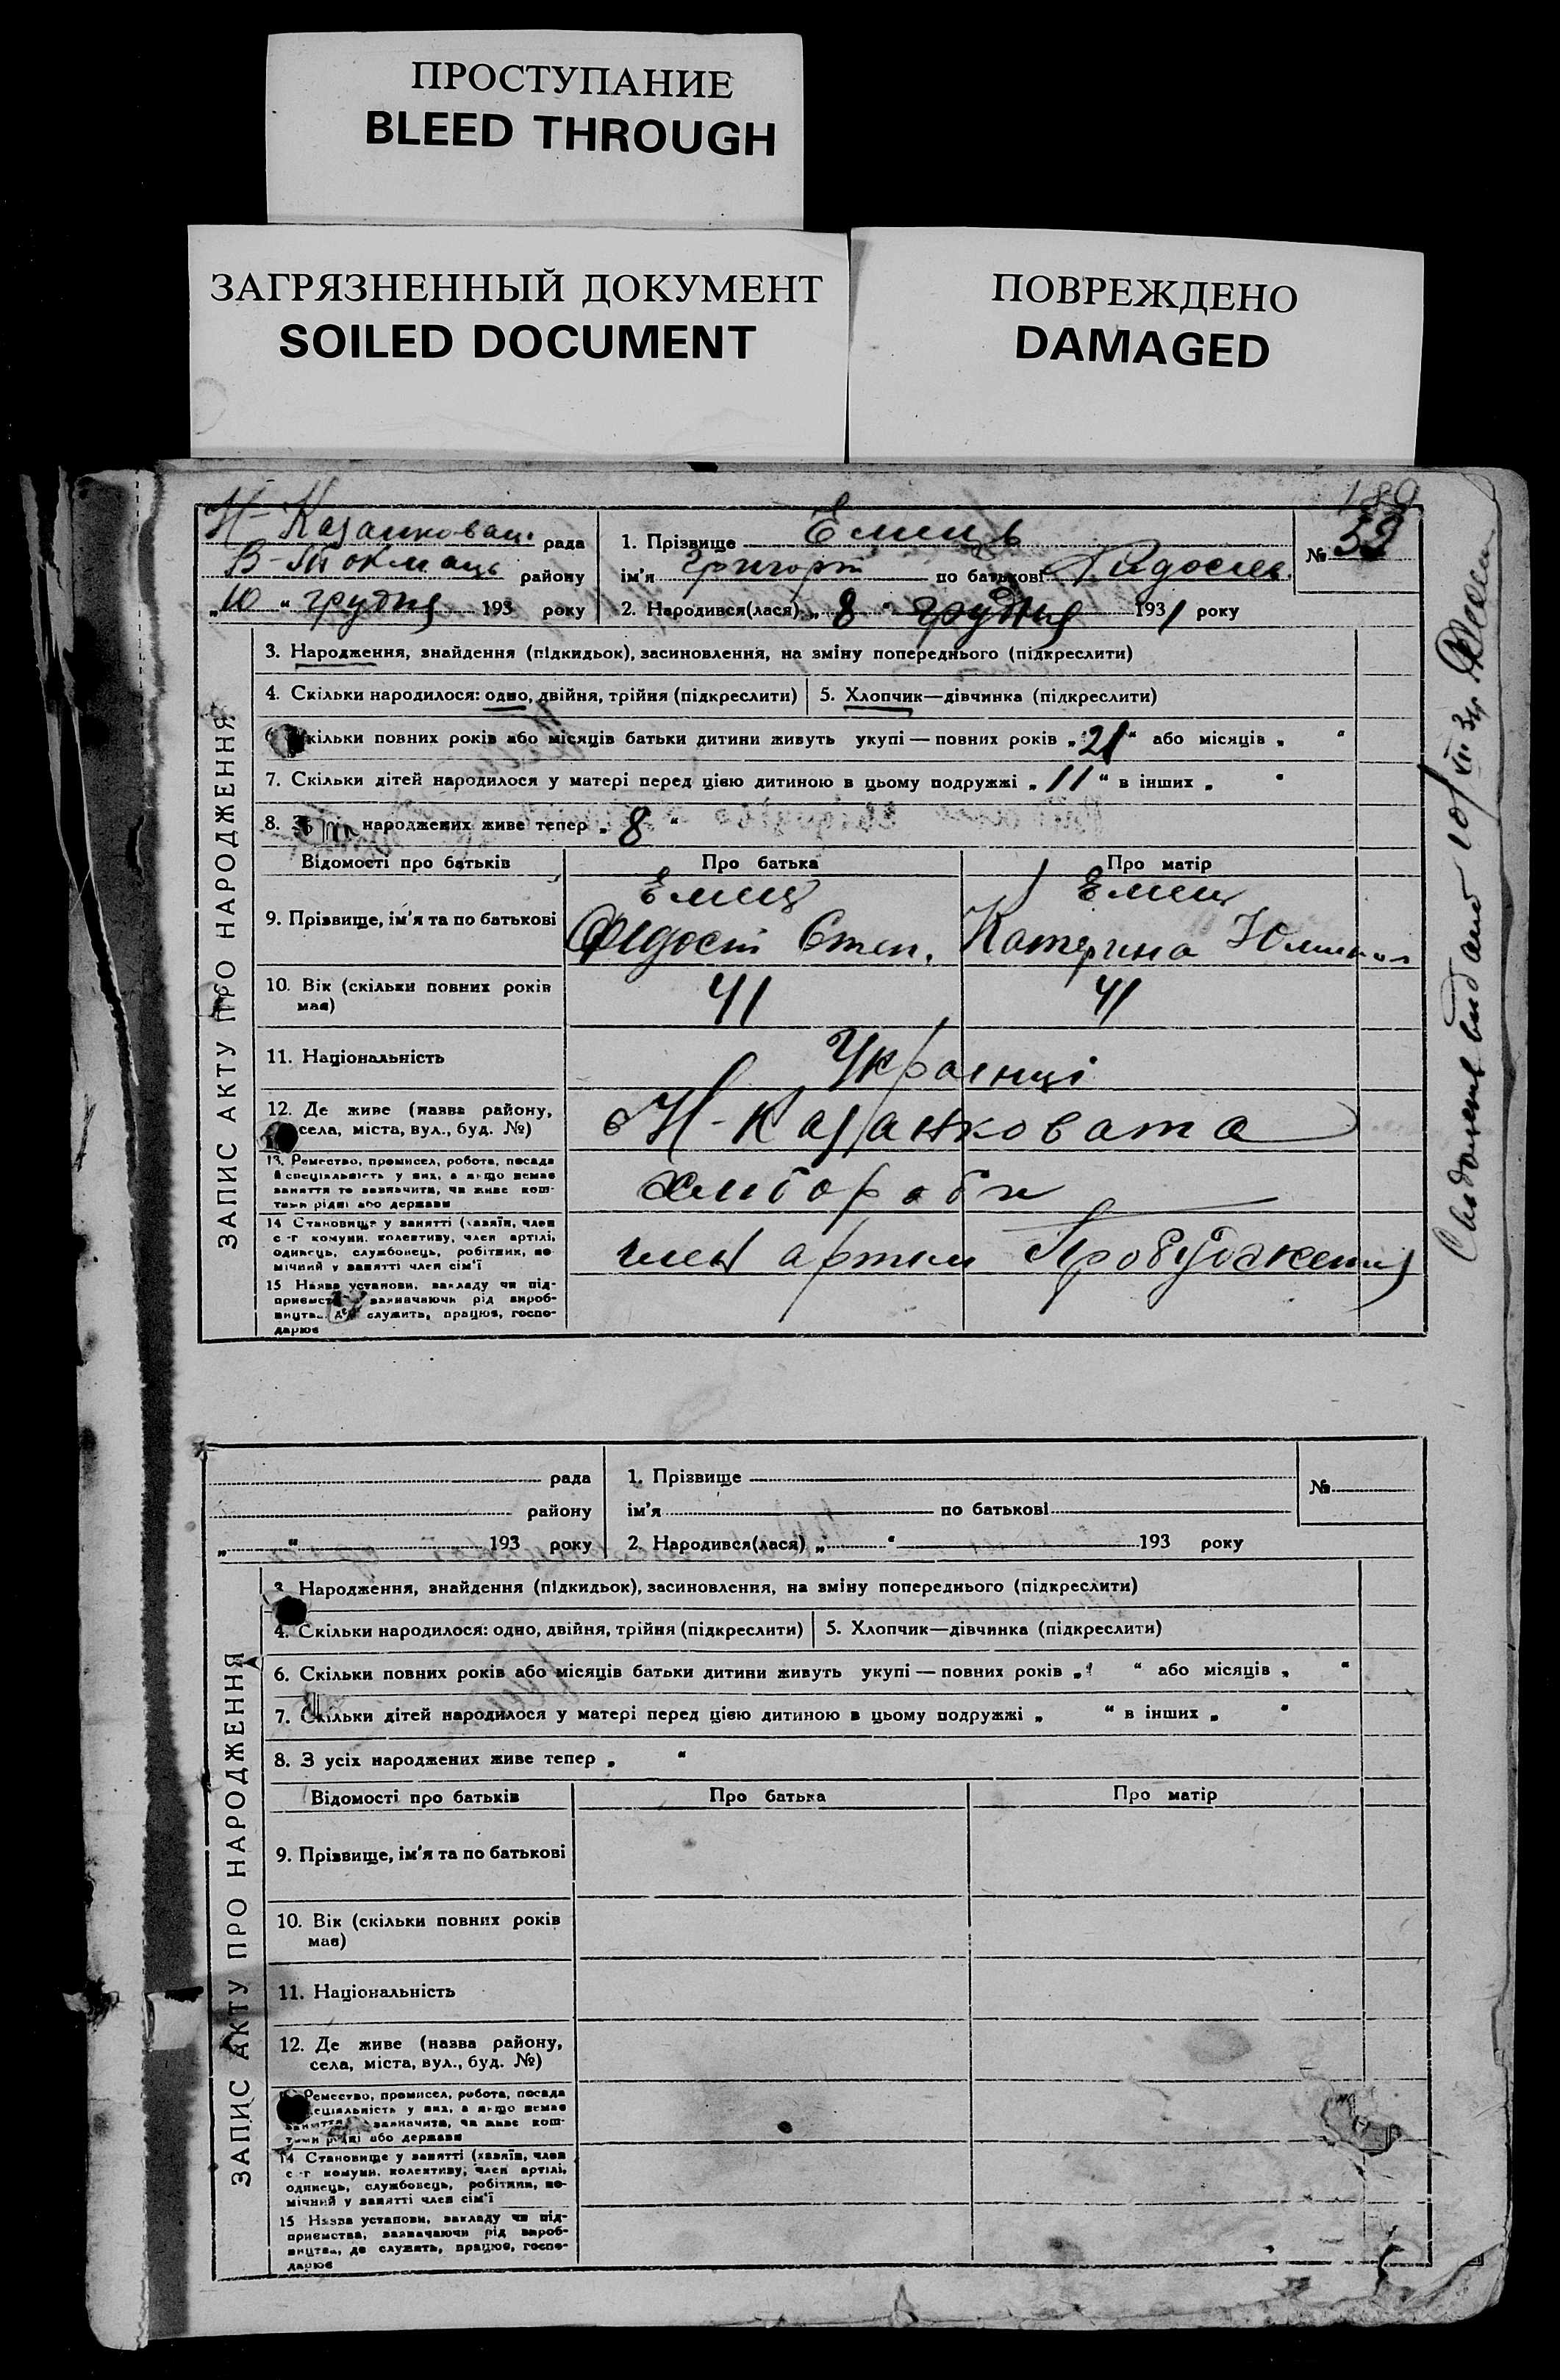 ПРОСТУПАНИЕ
BLEED THROUGH
ЗАГРЯЗНЕННЫЙ ДОКУМЕНТ
SOILED DOCUMENT
ПОВРЕЖДЕНО
DAMAGED
189
Н-Казанковац. рада
В-Токмаць району
„10“ грудня 193 року
1. Прізвище Емець
ім'я Григорій по батькові
2. Народився(лася) „8“ грудня 1931 року
№ 39
ЗАПИС АКТУ ПРО НАРОДЖЕННЯ
3. Народження, знайдення (підкидьок), засиновлення, на зміну попереднього (підкреслити)
4. Скільки народилося: одно, двійня, трійня (підкреслити) 5. Хлопчик—дівчинка (підкреслити)
кільки повних років або місяців батьки дитини живуть укупі — повних років „21“ або місяців „ “
7. Скільки дітей народилося у матері перед цією дитиною в цьому подружжі „11“ в інших „ “
8. народжених живе тепер „8“
Відомості про батьків Про батька Про матір
9. Прізвище, ім'я та по батькові
Емец Емец
Федосій Степ. Катерина
10. Вік (скільки повних років
має)
41 41
11. Національність Українці
12. Де живе (назва району,
села, міста, вул., буд. №)
Н-Казанковата
13. Ремество, промисел, робота, посада
й спеціяльність у них, а якщо немає
заняття то зазначити, чи живе кош-
тами рідні або держави
хлібороби
14 Становище у занятті (хазяїн, член
с-г комуни, колективу, член артілі,
одинець, службовець, робітник, по-
мічний у занятті член сім'ї
член артели Пробудження
15 Назва установи, закладу чи під-
приємст зазначаючи рід вироб-
ництва, де служить, працює, госпо-
дарює
видано 10/XII 31р
рада
району
„ “ 193 року
1. Прізвище
ім'я по батькові
2. Народився(лася) „ “ 193 року
№
ЗАПИС АКТУ ПРО НАРОДЖЕННЯ
3. Народження, знайдення (підкидьок), засиновлення, на зміну попереднього (підкреслити)
4. Скільки народилося: одно, двійня, трійня (підкреслити) 5. Хлопчик—дівчинка (підкреслити)
6. Скільки повних років або місяців батьки дитини живуть укупі — повних років „ “ або місяців „ “
7. Скільки дітей народилося у матері перед цією дитиною в цьому подружжі „ “ в інших „ “
8. З усіх народжених живе тепер „ “
Відомості про батьків Про батька Про матір
9. Прізвище, ім'я та по батькові
10. Вік (скільки повних років
має)
11. Національність
12. Де живе (назва району,
села, міста, вул., буд. №)
Ремество, промисел, робота, посада
еціяльність у них, а якщо немає
заняття зазначити, чи живе кош-
тами рідні або держави
14 Становище у занятті (хазяїн, член
с-г комуни, колективу, член артілі,
одинець, службовець, робітник, по-
мічний у занятті член сім'ї
15 Назва установи, закладу чи під-
приємства, зазначаючи рід вироб-
ництва, де служить, працює, госпо-
дарює